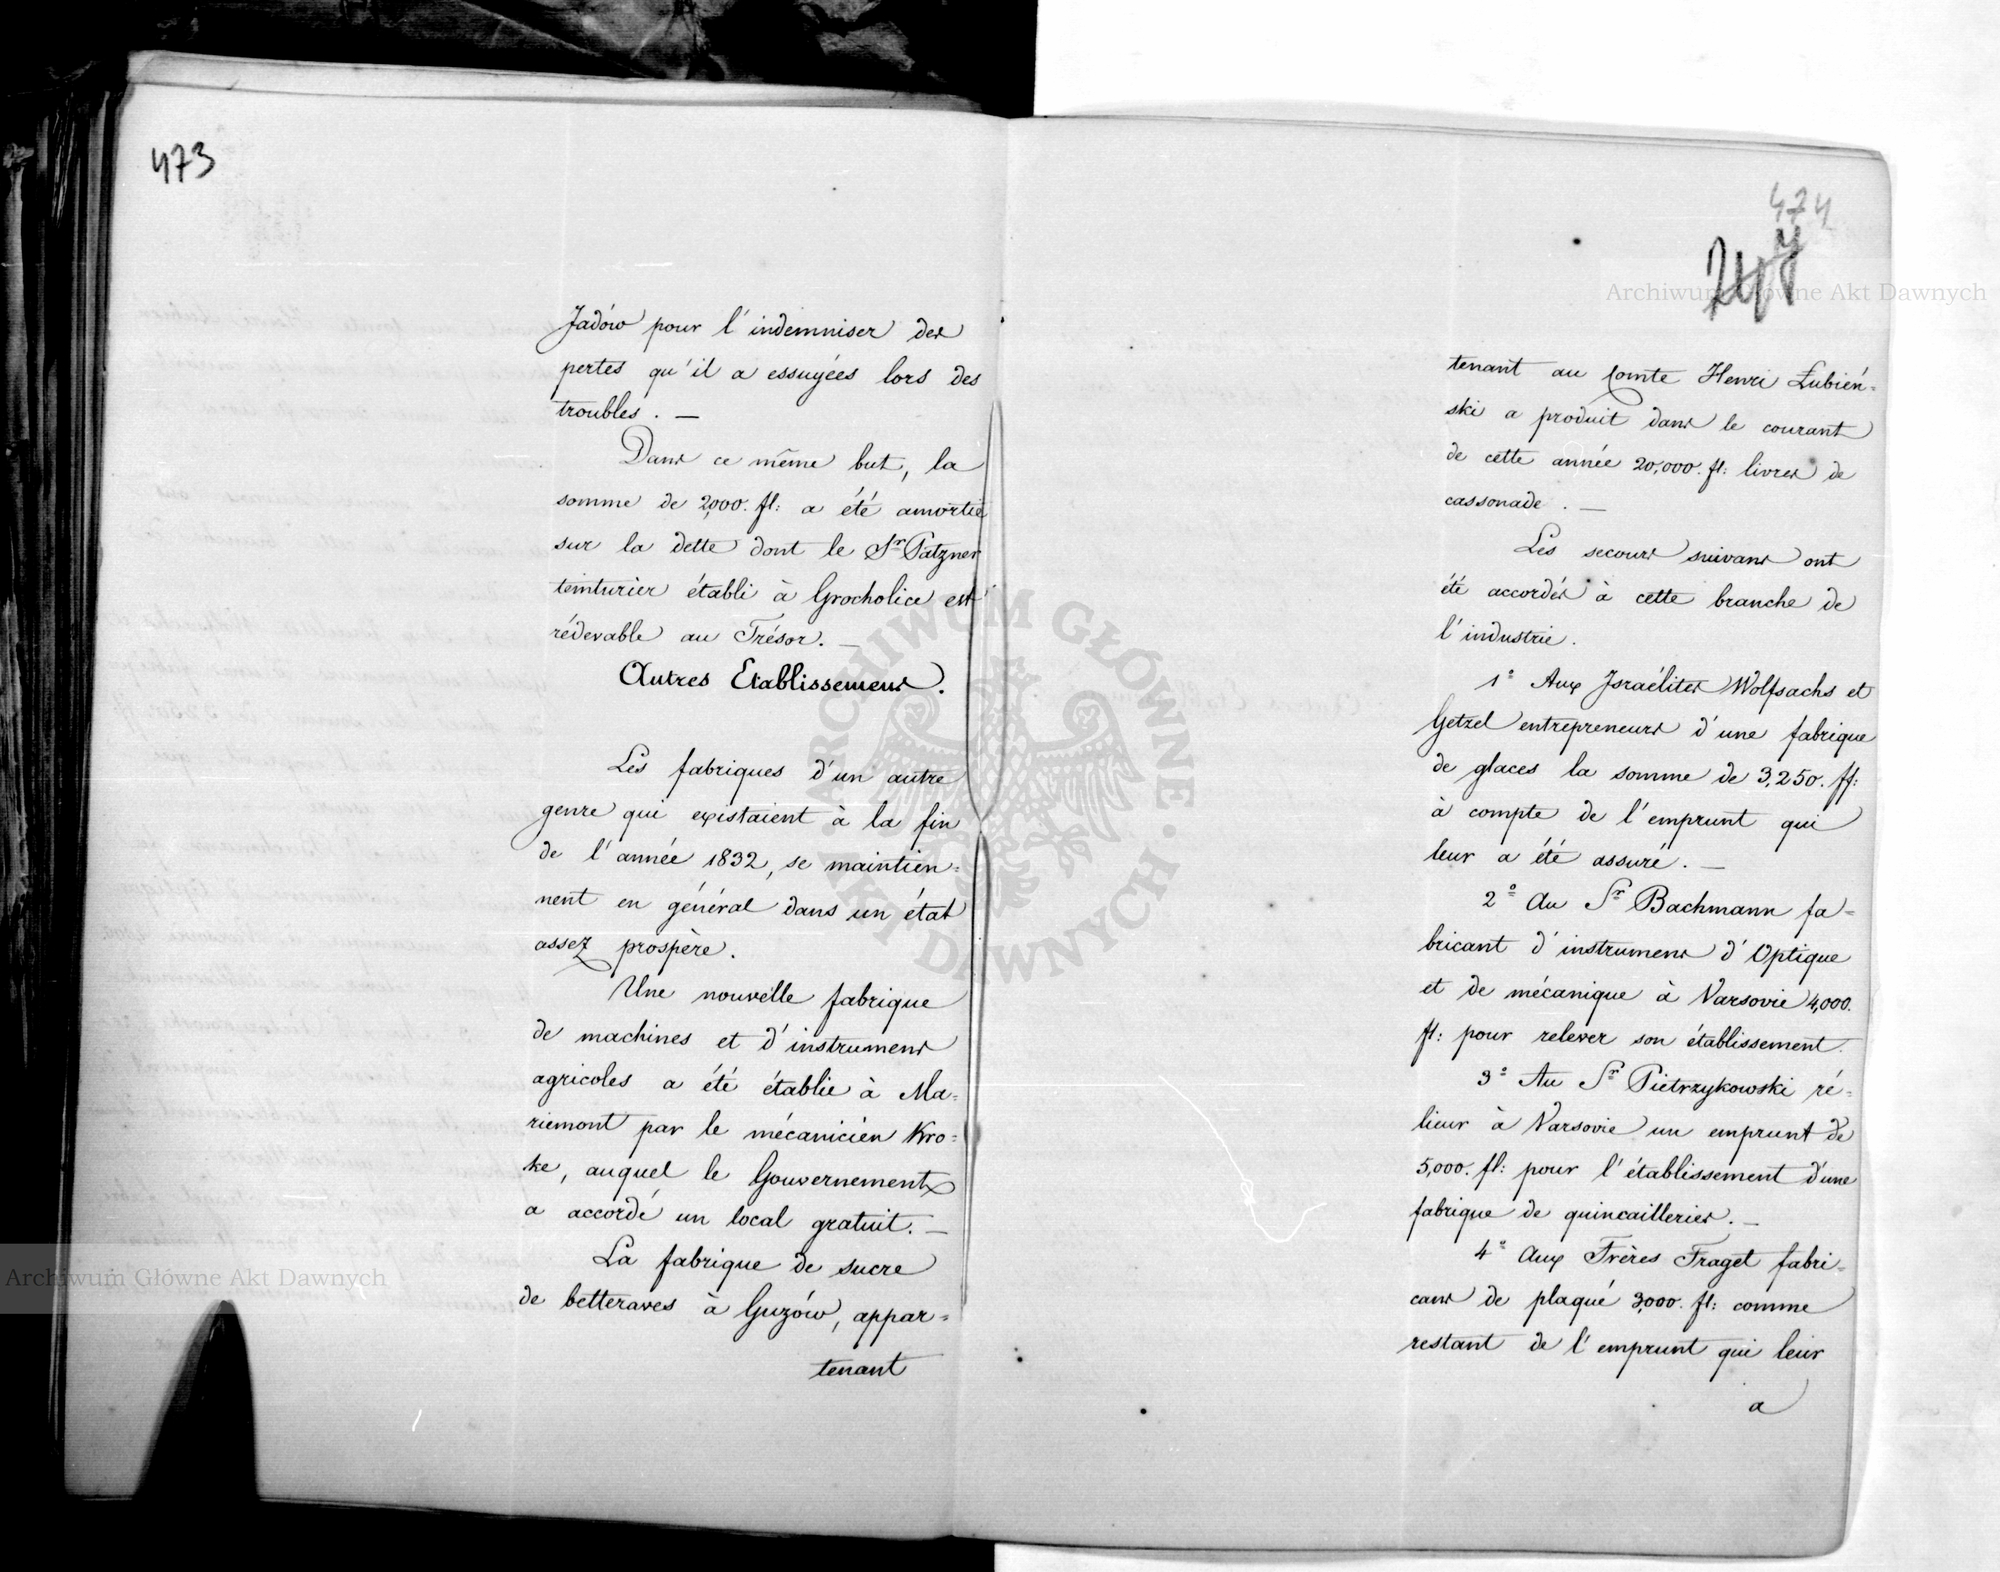 473
Jadów pour l'indemniser des
pertes qu'il a essuyées lors des
troubles. —
Dans ce même but, la
somme de 2,000. fl: a été amortie
sur la dette dont le Sr Patzner
teinturier établi à Grocholice est
rédevable au Trésor. —
Autres Etablissemens.
Les fabriques d'un autre
genre qui existaient à la fin
de l'année 1832, se maintien=
nent en général dans un état
assez prospère.
Une nouvelle fabrique
de machines et d'instrumens
agricoles a été établie à Ma=
riemont par le mécanicien Kro=
ke, auquel le Gouvernement
a accordé un local gratuit. —
La fabrique de sucre
de betteraves à Guzów, appar=
tenant
474
247
tenant au Comte Henri Łubień=
ski a produit dans le courant
de cette année 20,000. fl: livres de
cassonade. —
Les secours suivans ont
été accordés à cette branche de
l'industrie.
1° Aux Israélites Wolfsachs et
Getzel entrepreneurs d'une fabrique
de glaces la somme de 3,250. ff:
à compte de l'emprunt qui
leur a été assuré. —
2° Au Sr Bachmann fa=
bricant d'instrumens d'Optique
et de mécanique à Varsovie 4,000.
fl: pour relever son établissement.
3° Au Sr Pietrzykowski ré=
lieur à Varsovie un emprunt de
5,000. fl: pour l'établissement d'une
fabrique de quincailleries. —
4° Aux Frères Fraget fabri=
cans de plaqué 3,000. fl: comme
restant de l'emprunt qui leur
a
Archiwum Główne Akt Dawnych
Archiwum Główne Akt Dawnych
ARCHIWUM GŁÓWNE AKT DAWNYCH